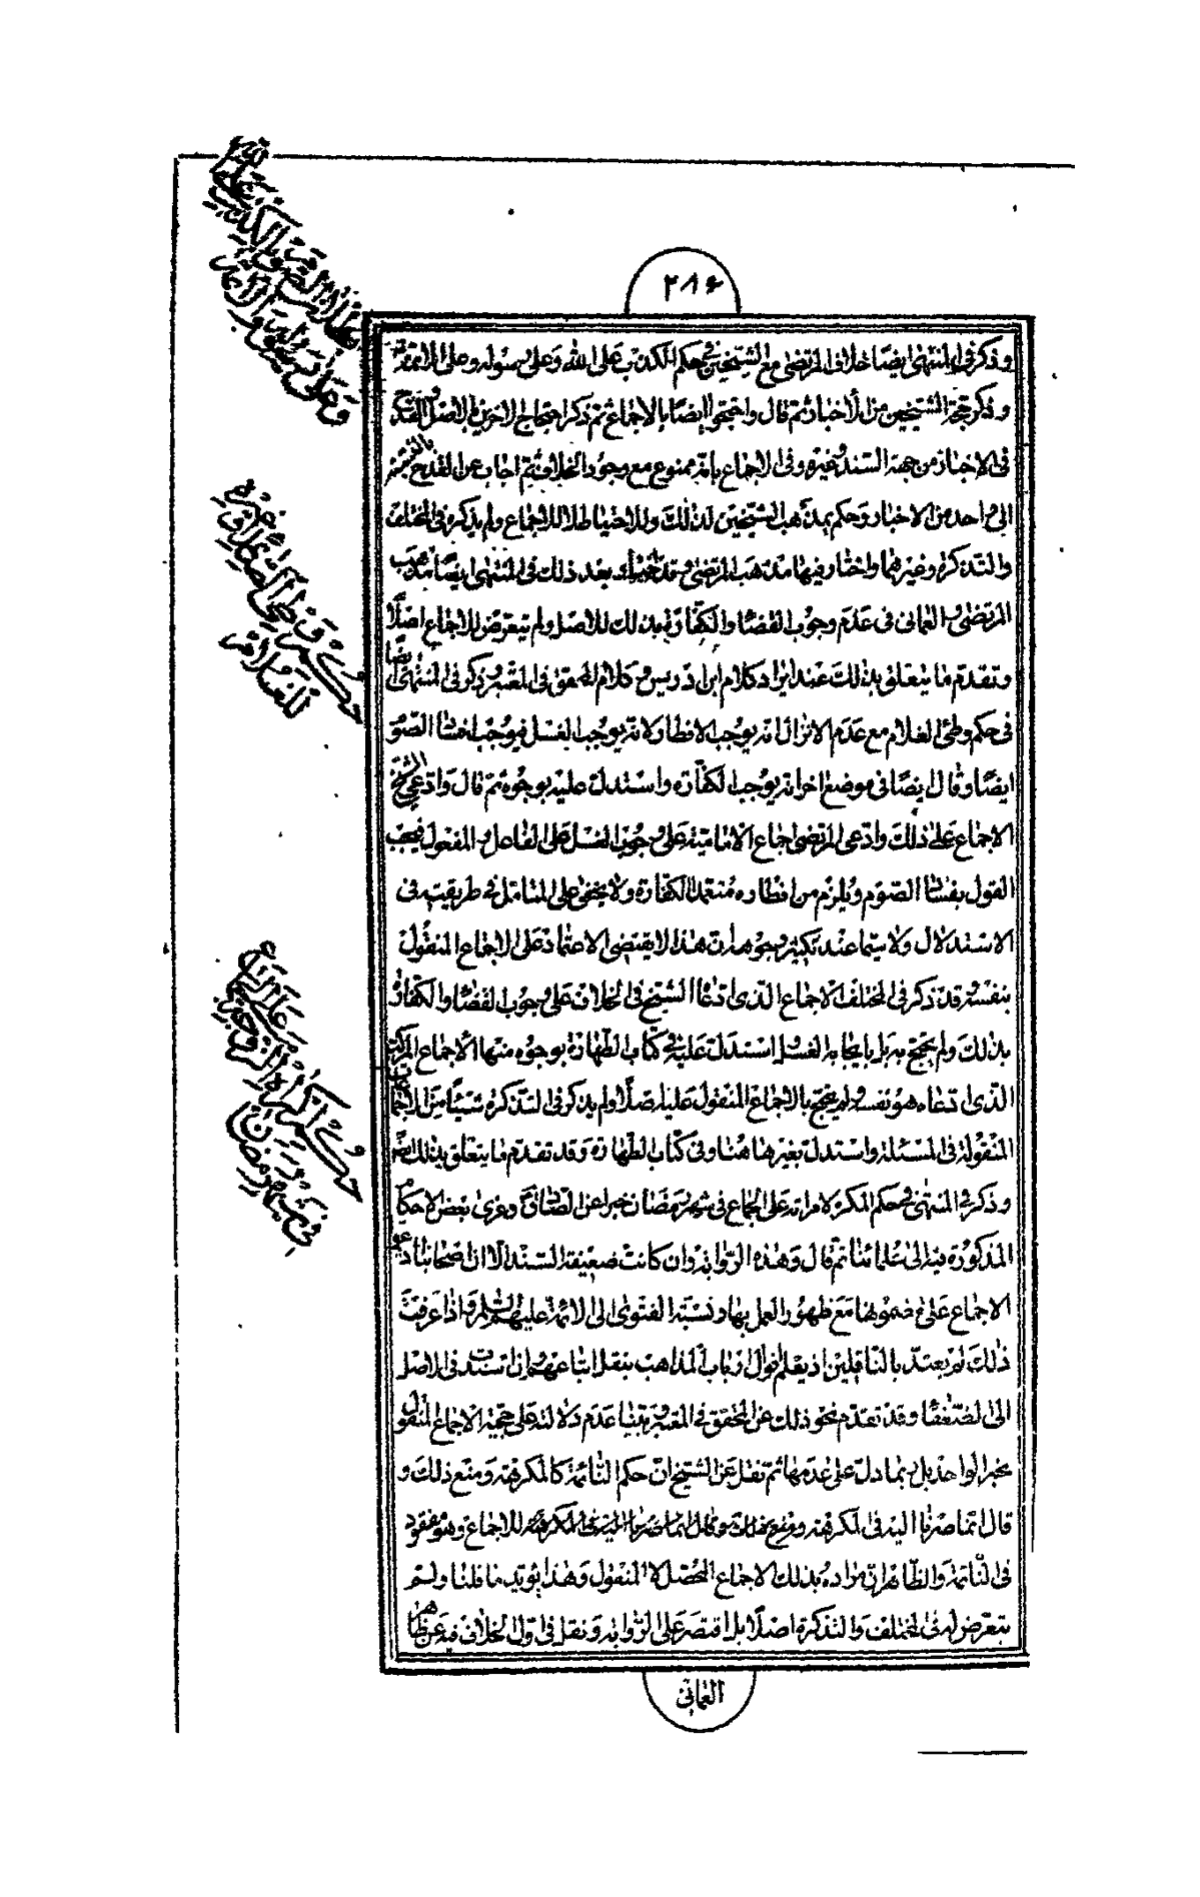 ٢٨٦
وذكر في المنتهى ايضا خلاف المرتضى مع الشيخين في حكم الكذب على الله وعلى رسوله وعلى الائمة
وذكر حجة الشيخين من الأخبار ثم قال واحتجوا ايضا بالاجماع ثم ذكر احتجاج الاخرين بالاصل والقدح
في الاخبار من جهة السند وغيره وفى الاجماع بانه ممنوع مع وجود الخلاف ثم اجاب عن القدح بالنسبة
الى واحد من الاخبار وحكم بمذهب الشيخين لذلك وللاحتياط لا للاجماع ولم يذكره في المختلف
والتذكرة وغيرهما واختار فيها مذهب المرتضى وقد اختار بعد ذلك في المنتهى ايضا مذهب
المرتضى والعماني في عدم وجوب القضاء والكفارة بذلك للاصل ولم يتعرض للاجماع اصلا
وتقدم ما يتعلق بذلك عند ايراد كلام ابن ادريس وكلام المحقق في المعتبر وذكر في المنتهى ايضا
في حكم وطئ الغلام مع عدم الانزال انه يوجب الافطار لانه يوجب الغسل فيوجب افساد الصوم
ايضا وقال ايضا في موضع اخر انه يوجب الكفارة واستدل عليه بوجوه ثم قال وادعى الشيخ
الاجماع على ذلك وادعى المرتضى اجماع الامامية على وجوب الغسل على الفاعل والمفعول فيجب
القول بفساد الصوم ويلزم من افطاره متعمدا الكفارة ولا يخفى على المتامل في طريقته في
الاستدلال ولا سيما عند تكثير وجوهه ان هذا لا يقتضى الاعتماد على الاجماع المنقول
بنفسه وقد ذكر في المختلف الاجماع الذى ادعاه الشيخ في الخلاف على وجوب القضاء والكفارة
بذلك ولم يحتج به بل بايجابه الغسل واستدل عليه في كتاب الطهارة بوجوه منها الأجماع المركب
الذى ادعاه هو نفسه ولم يحتج بالاجماع المنقول عليه اصلا ولم يذكر في التذكرة شيئا من الاجماعات
المنقولة في المسئلة واستدل بغيرها هنا وفى كتاب الطهارة وقد تقدم ما يتعلق بذلك ايضا
وذكر في المنتهى في حكم المكره لامراته على الجماع في شهر رمضان خبرا عن الصادق وعزى بعض الاحكام
المذكورة فيه الى علمائنا ثم قال وهذه الرواية وان كانت ضعيفة السند الا ان اصحابنا ادعوا
الاجماع على مضمونها مع ظهور العمل بها ونسبة الفتوى الى الائمة عليهم السلام واذا عرفت
ذلك لم يعتد بالناقلين اذ يعلم اقوال ارباب المذاهب بنقل اتباعهم وان استندت في الاصل
الى الضعفاء وقد تقدم نحو ذلك عن المحقق في المعتبر وبينا عدم دلالته على حجية الاجماع المنقول
بخبر الواحد بل بما دل على عدمها ثم نقل عن الشيخ ان حكم النائمة كالمكرهة ومنع ذلك و
قال انما صرنا اليه في المكرهة للاجماع وهو مفقود
في النائمة والظاهر ان مراده بذلك الاجماع المحصل لا المنقول وهذا يؤيد ما قلنا ولم
يتعرض له في المختلف والتذكرة اصلا بل اقتصر على الرواية ونقل في اول الخلاف فيه عن ظاهر
العماني
حكم وطى الغلام
حكم اكراه الزوجة على الجماع
في شهر رمضان